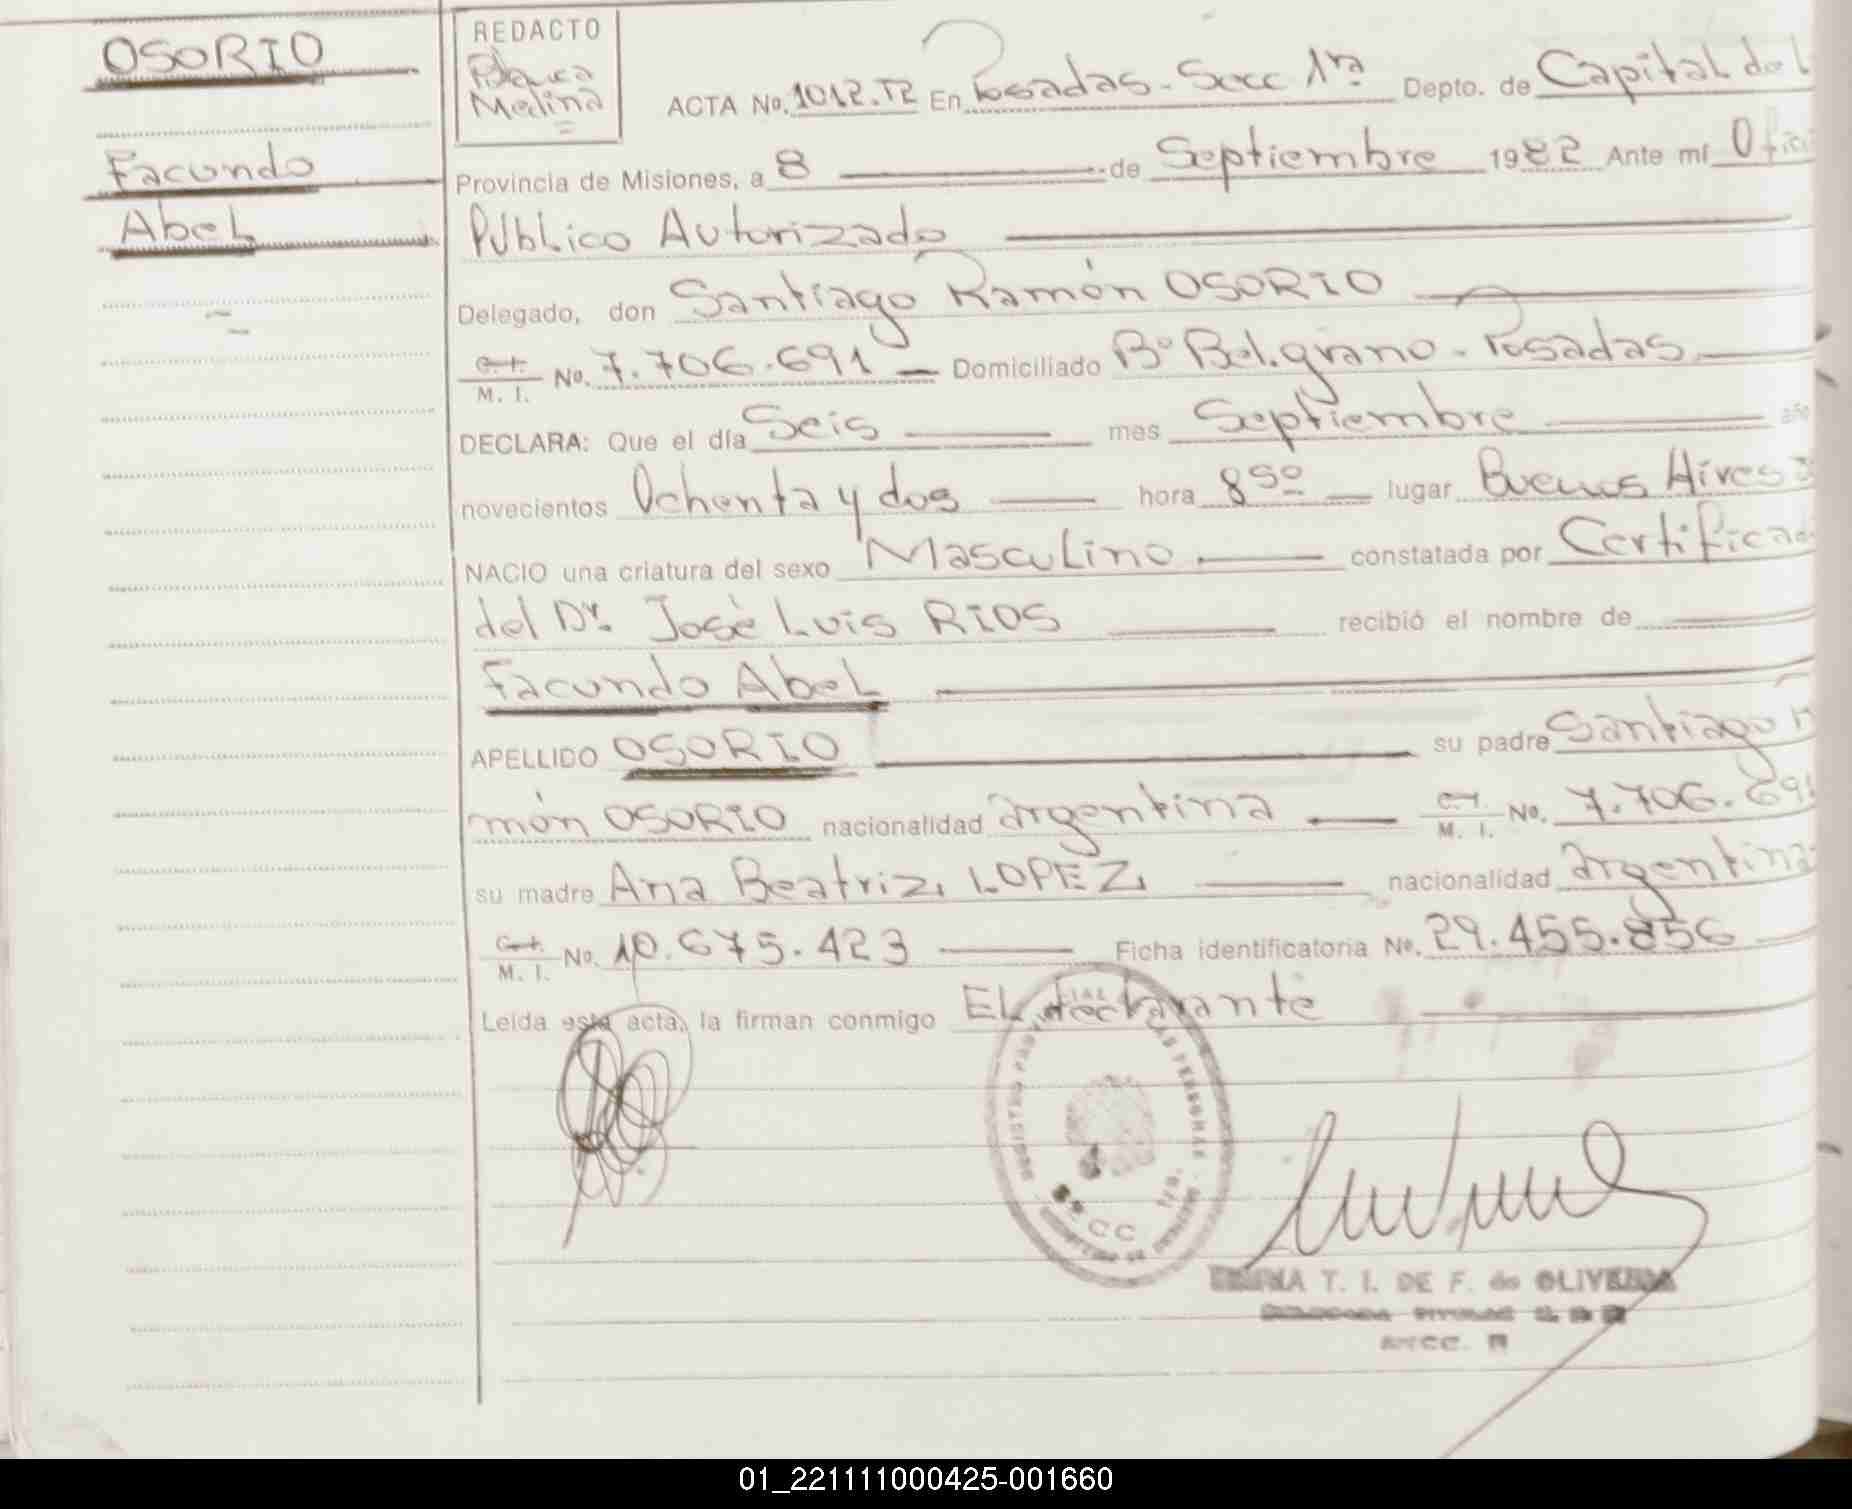 OSORIO
Facundo
Abel
REDACTO
Blanca
Medina
ACTA No. 1012.T2 En Posadas - Secc 1ra Depto. de Capital de l
Provincia de Misiones, a 8 de Septiembre 1982 Ante mí Ofici
Público Autorizado
Delegado, don Santiago Ramón OSORIO
C. I. M. I. No. 7.706.691 Domiciliado Bº Belgrano - Posadas
DECLARA: Que el día Seis mes Septiembre año
novecientos Ochenta y dos hora 8 50 lugar Buenos Aires
NACIO una criatura del sexo Masculino constatada por Certificad
del Dr. José Luis RIOS recibió el nombre de
Facundo Abel
APELLIDO OSORIO su padre Santiago
món OSORIO nacionalidad argentina C. I. M. I. No. 7.706.691
su madre Ana Beatriz LOPEZ nacionalidad argentina
C. I. M. I. No. 10.675.423 Ficha identificatoria No. 29.455.856
Leída esta acta, la firman conmigo El declarante
T. I. DE F. de OLIVEIRA
01_221111000425-001660